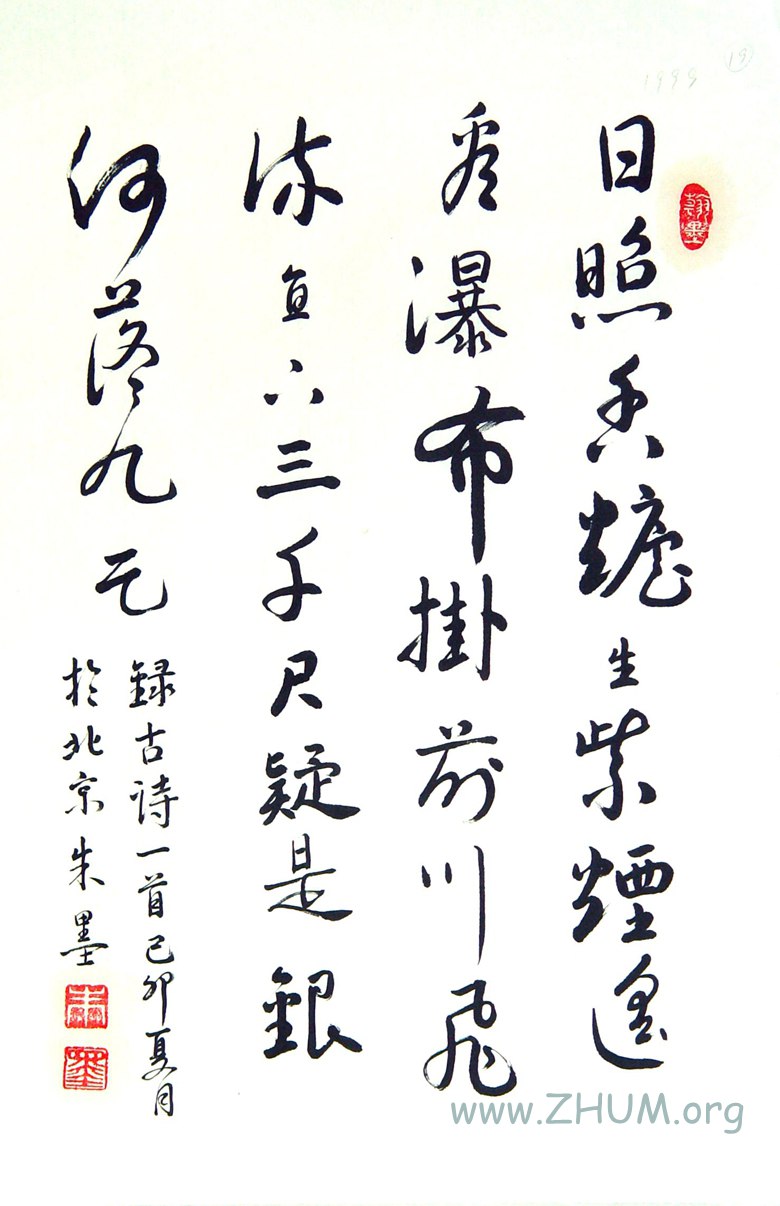 19
1999
日照香爐生紫煙遙
看瀑布掛前川飛
流直下三千尺疑是銀
河落九天
錄古詩一首己卯夏月
於北京朱墨
www.ZHUM.org